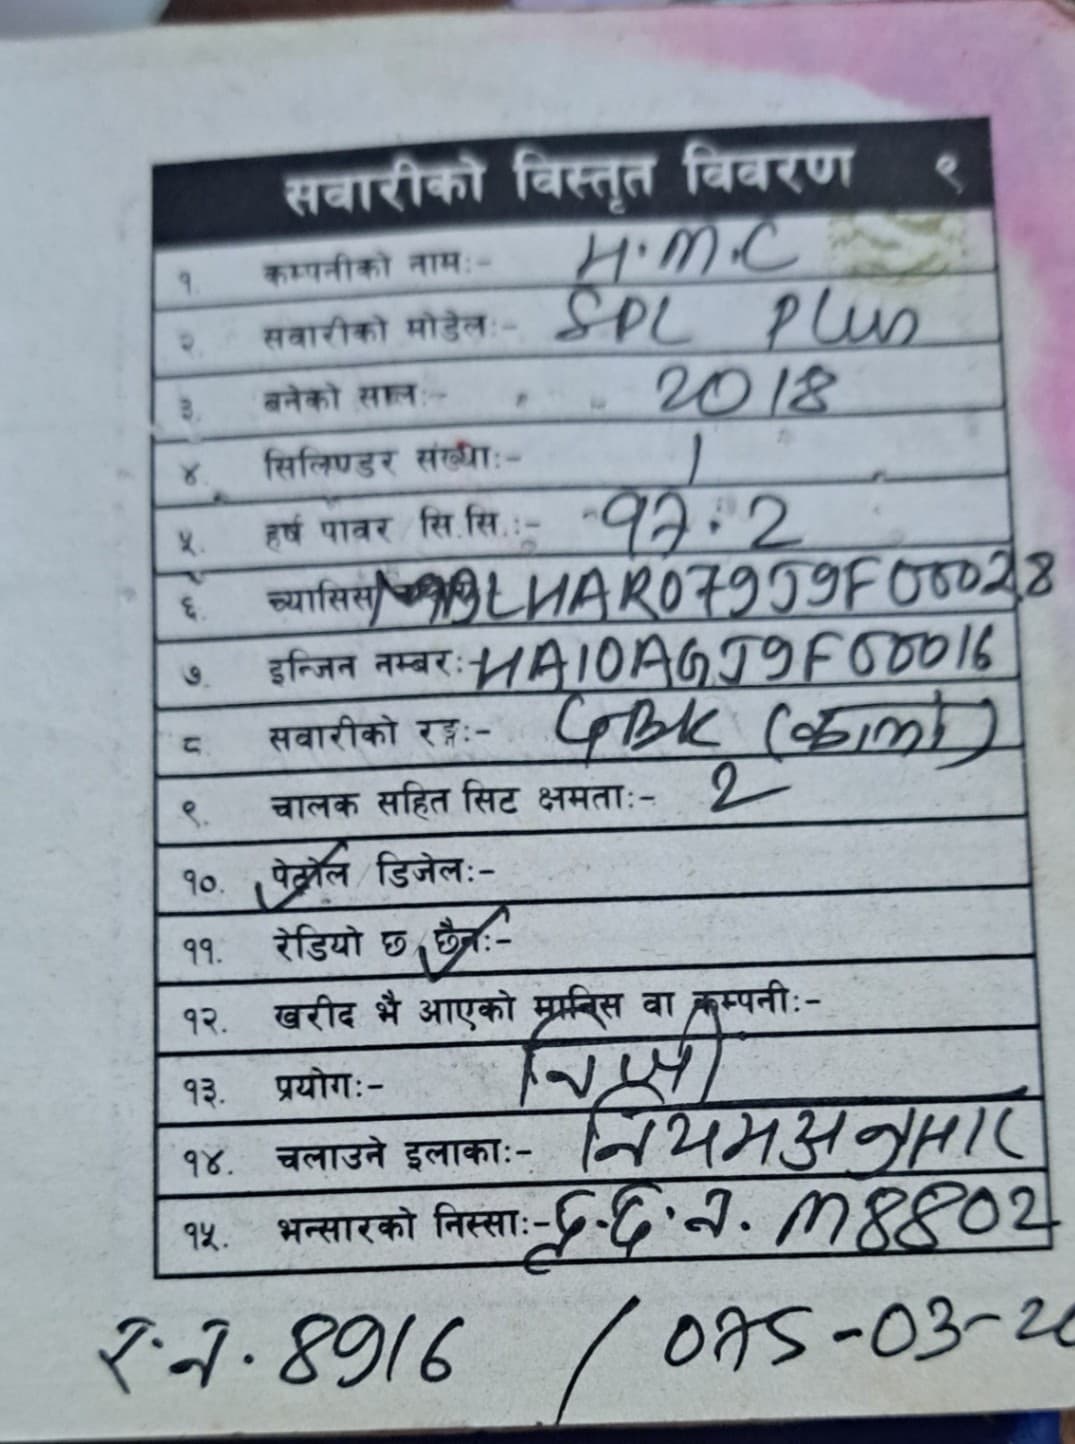 सवारीको विस्तृत विवरण ९
१. कम्पनीको नाम:- H.M.C
२. सवारीको मोडेल:- SPL Plus
३. बनेको साल:- 2018
४. सिलिण्डर संख्या:- 1
५. हर्ष पावर सि.सि.:- 97.2
६. च्यासिस MBLHAR079J9F00028
७. इन्जिन नम्बर: HA10AGJ9F00016
८. सवारीको रङ्ग:- GBK (कालो)
९. चालक सहित सिट क्षमता:- 2
१०. पेट्रोल डिजेल:-
११. रेडियो छ छैन:-
१२. खरीद भै आएको मानिस वा कम्पनी:-
१३. प्रयोग:- निजी
१४. चलाउने इलाका:- नियमअनुसार
१५. भन्सारको निस्सा:- द.नं. M8802
र.नं. 8916 / 075-03-2